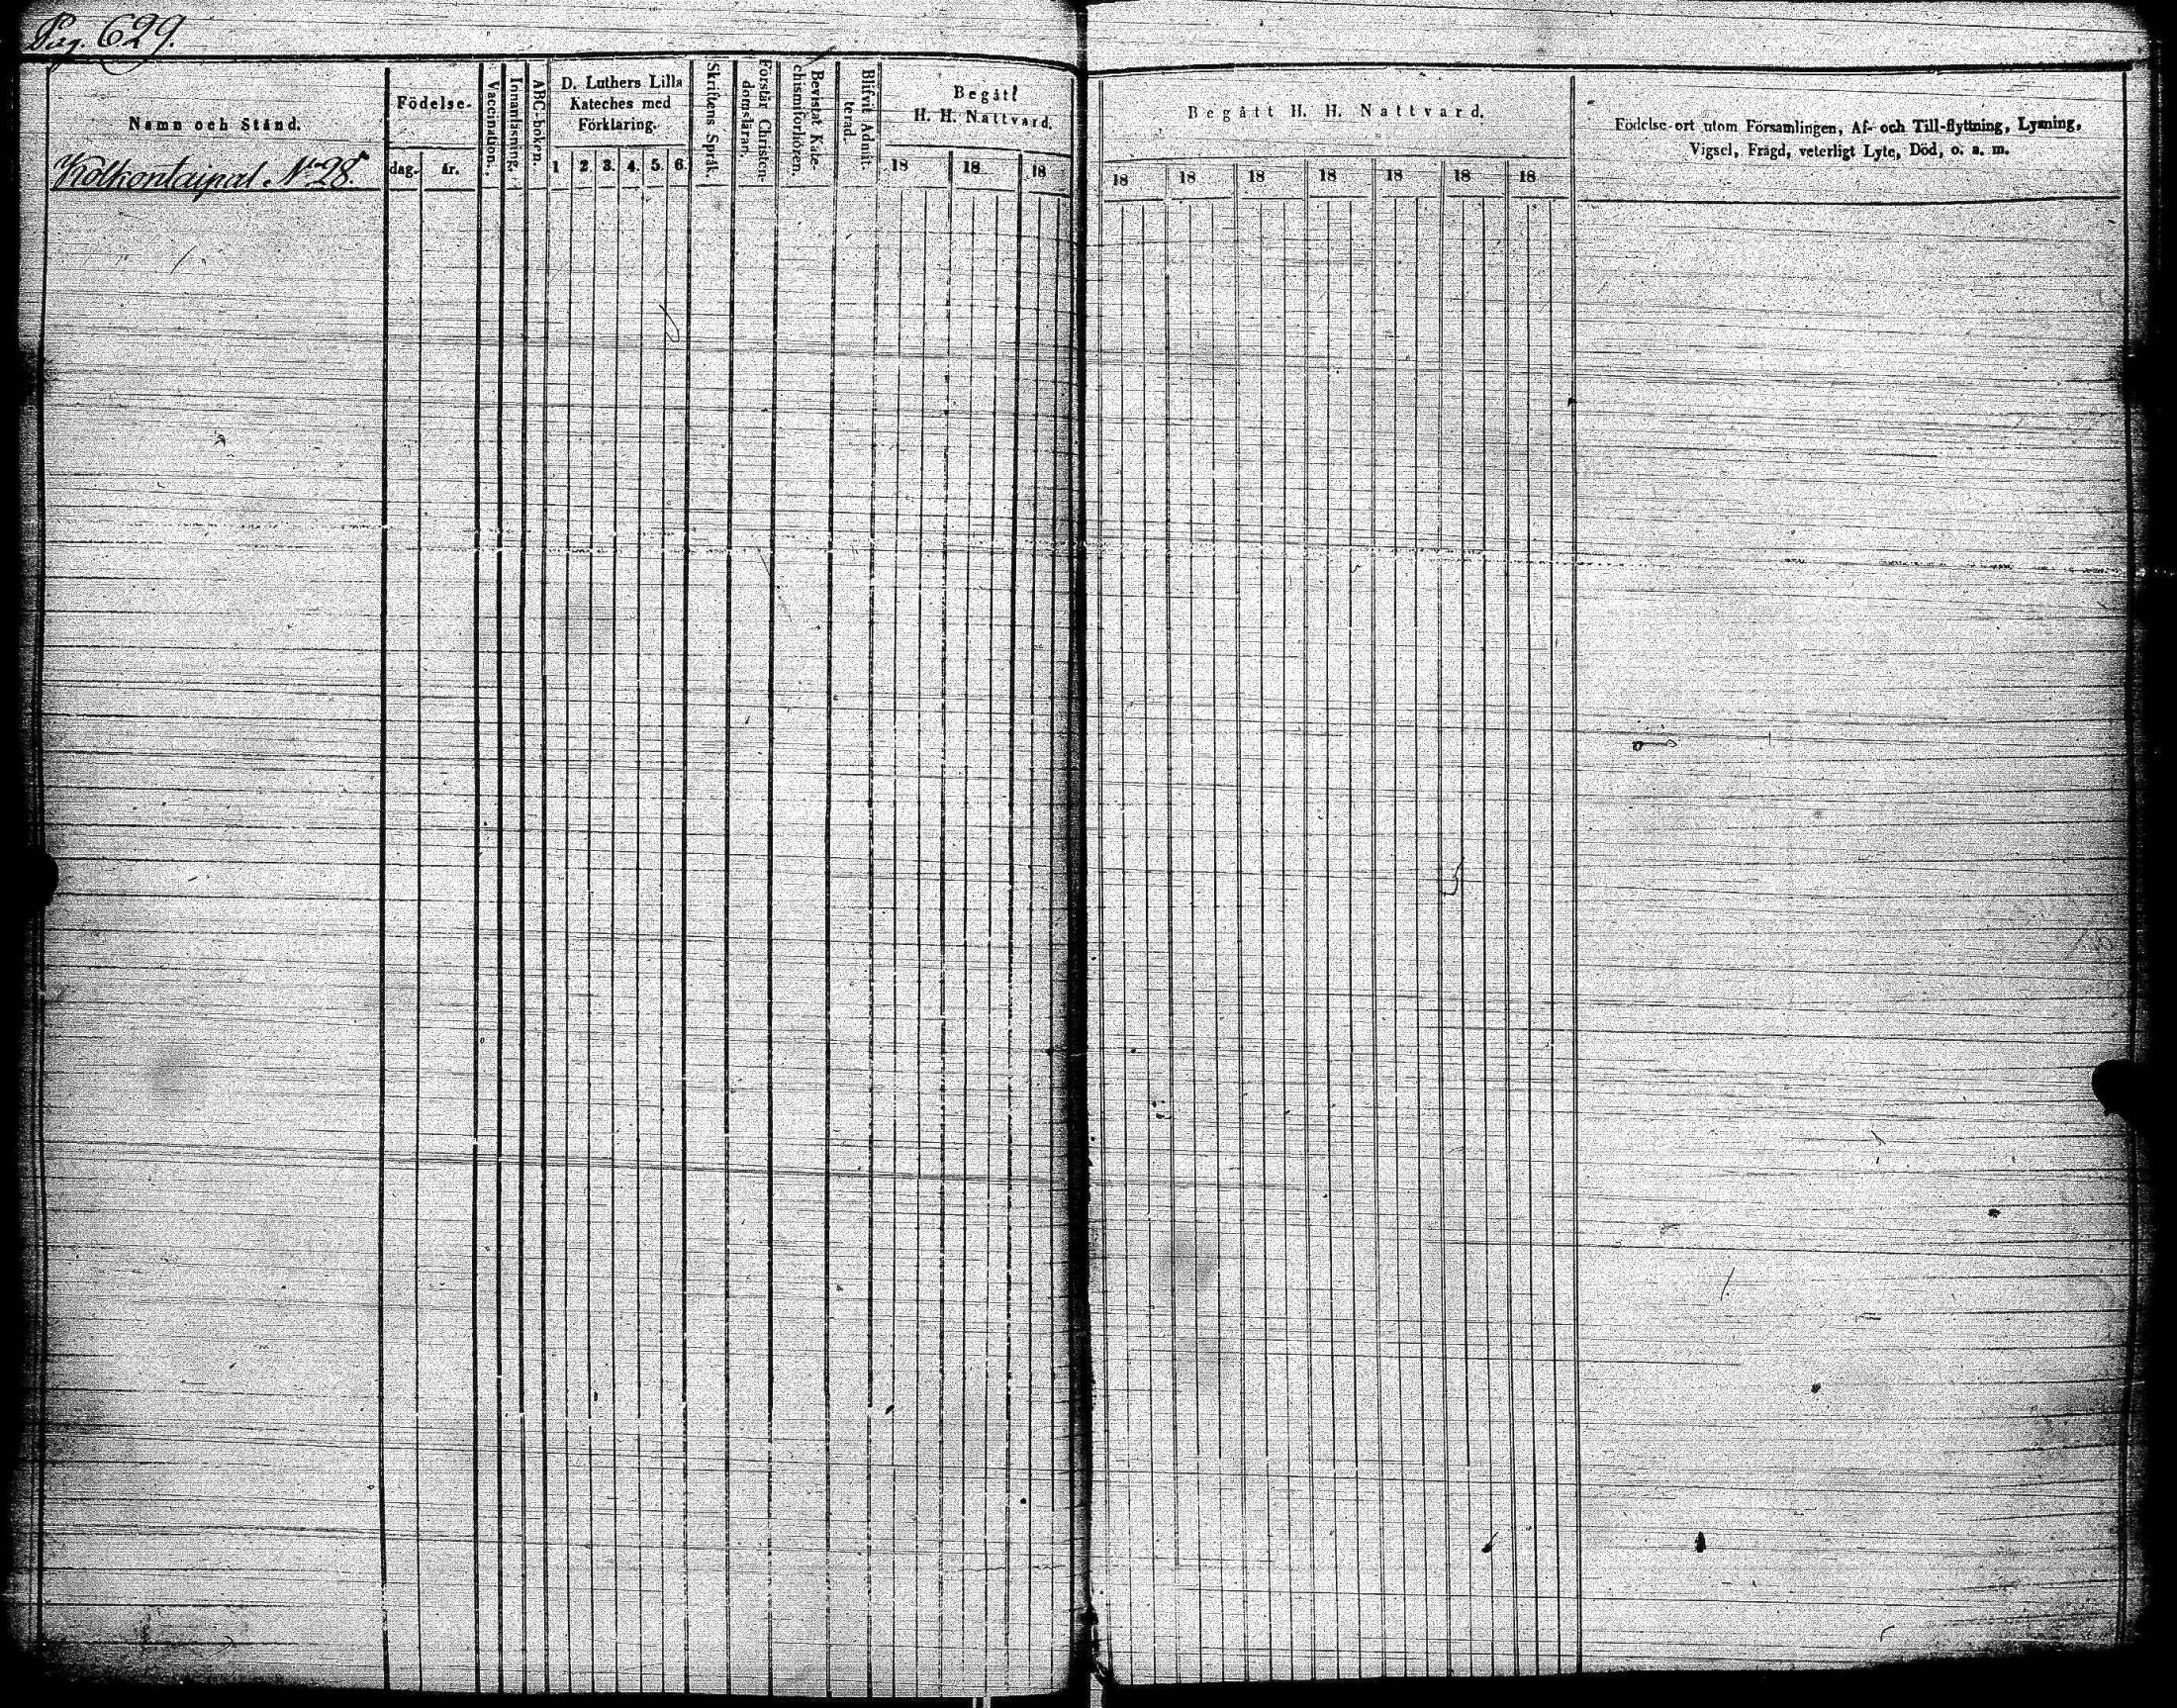 Pag. 629.
Namn och Stånd.
Kolkontaipal. No 28.
Födelse-
dag. år.
Vaccination.
Innanläsning.
ABC-boken.
D. Luthers Lilla
Kateches med
Förklaring.
1 2. 3. 4. 5. 6.
Skriftens Språk.
Förstår Christen-
domsläran.
Bevistat Kate-
chismiförhören.
Blifvit Admit-
terad.
Begått
H. H. Nattvard.
18 18 18
Begått H. H. Nattvard.
18 18 18 18 18 18 18
Födelse-ort utom Församlingen, Af- och Till-flyttning, Lysning,
Vigsel, Frägd, veterligt Lyte, Död, o. s. m.